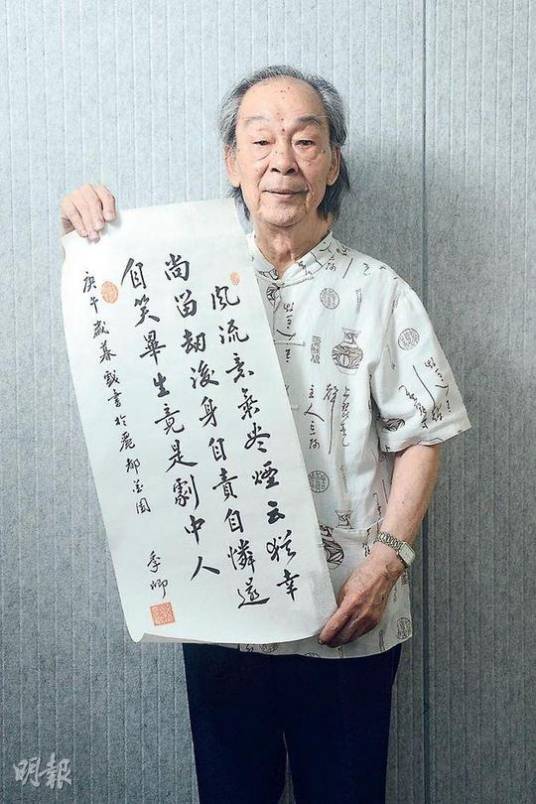 風流意氣尽煙云猶幸
尚留劫後身自責自憐還
自笑畢生竟是劇中人
庚午歲暮戲書於麗都園
季卿
主人
明報